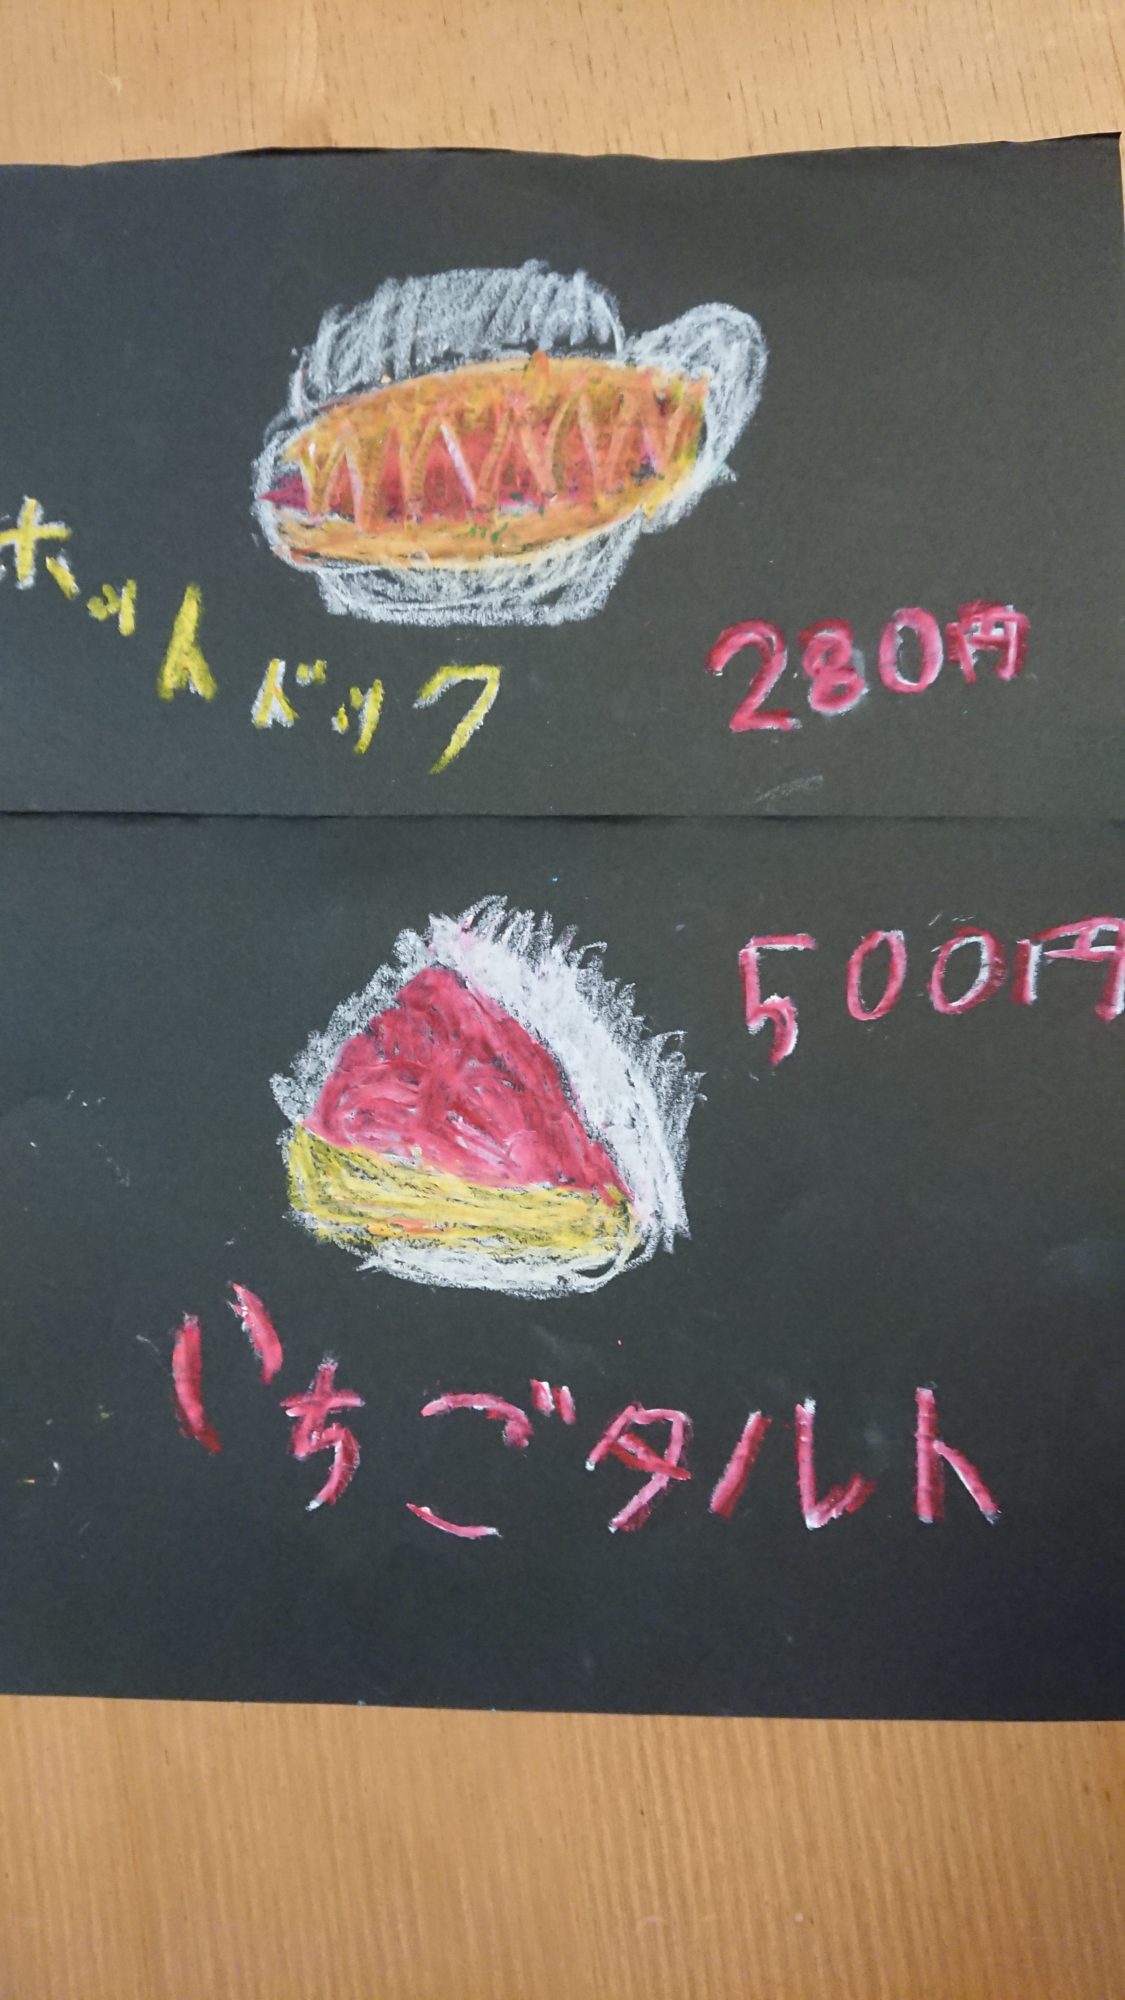 ホットドック
280円
500円
いちごタルト